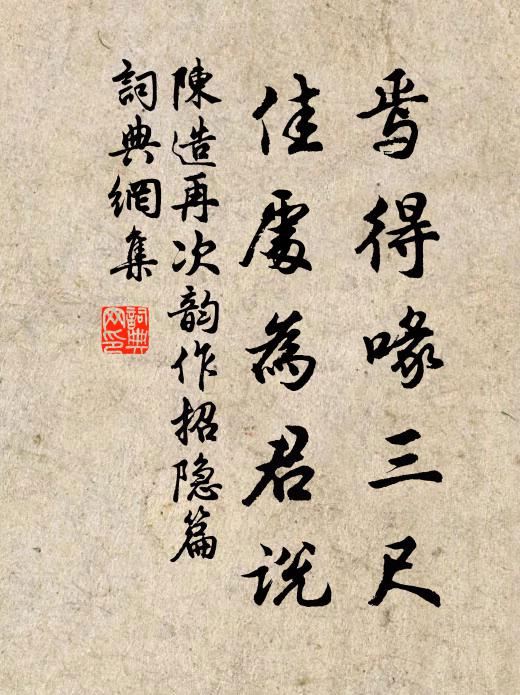 焉得喙三尺
佳處為君説
陳造再次韵作招隐篇
詞典網集
詞典
网印